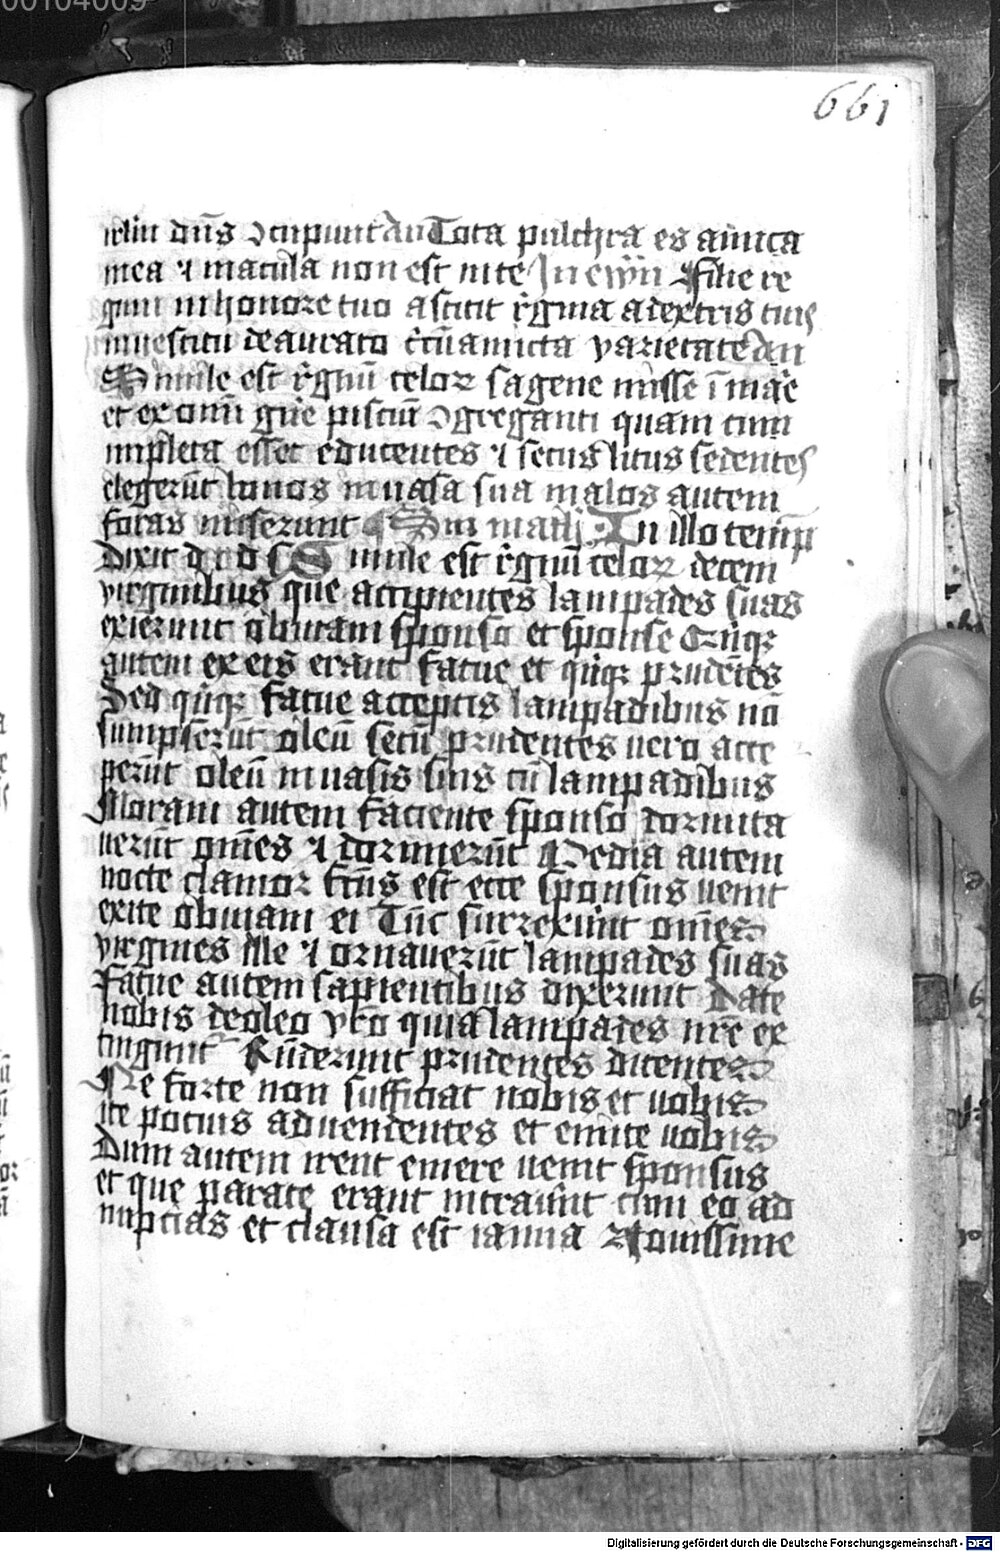 00104009
661
dn̄s ɔcupunt An Tota pulchra es amica
mea ⁊ macula non est in te In ewn Filie re
gum in honore tuo astitit rͥgina a dextris tuis
in uestitu deaurato cͥcūamicta varietate An
Simile est rͥgnū celoꝝ sagene misse ī maͬe
et ex omni gn̄e pisciū ɔgreganti quam cum
impleta esset educentes ⁊ secus litus sedentes
elegerūt bonos in uasa sua malos autem
foras miserunt Sm math In illo temp̄
Dixit d i d s Simile est rͥgnū celoꝝ decem
virginibus que accipientes lampades suas
exierunt obuiam sponso et sponse Quīqꝫ
autem ex eis erant fatue et qūqꝫ prudētes
Sed qūqꝫ fatue acceptis lampadibus nō
sumpserūt oleū secū prudentes uero acce
perūt oleū in uasis suis cū lampadibus
Moram autem faciente sponso dormita
uerūt om̄es ⁊ dormierūt Media autem
nocte clamor fc̄us est ecce sponsus uenit
exite obuiam ei Tūc surrexerūt om̄es
virgines ille ⁊ ornauerūt lampades suas
Fatue autem sapientibus dixerunt Date
nobis de oleo vr̄o quia lampades nr̄e ex
tingunt᷑ Rn̄derunt prudentes dicentes
Ne forte non sufficiat nobis et uobis
ite pocius ad uendentes et emite uobis
Dum autem irent emere uenit sponsus
et que parate erant intrauerūt cum eo ad
nupcias et clausa est ianua Nouissime
Digitalisierung gefördert durch die Deutsche Forschungsgemeinschaft - DFG